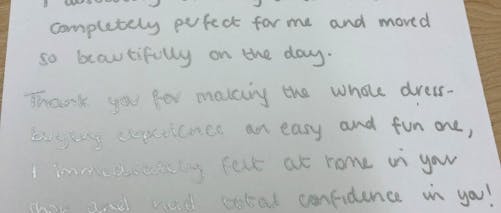 completely perfect for me and moved
so beautifully on the day.
Thank you for making the whole dress-
buying experience an easy and fun one,
I immediately felt at home in your
shop and had total confidence in you!